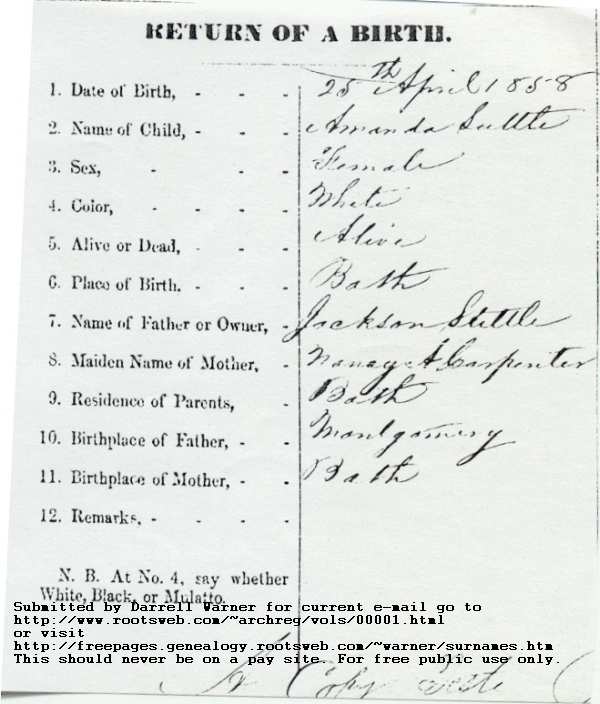 RETURN OF A BIRTH.
1. Date of Birth, - - - 25th April 1858
2. Name of Child, - - - Amanda Suttle
3. Sex, - - - Female
4. Color, - - - - White
5. Alive or Dead, - - - Alive
6. Place of Birth. - - - Bath
7. Name of Father or Owner, - Jackson Suttle
8. Maiden Name of Mother, - Nancy A Carpenter
9. Residence of Parents, - Bath
10. Birthplace of Father, - - Montgomery
11. Birthplace of Mother, - - Bath
12. Remarks, - - - -
N. B. At No. 4, say whether
White, Black, or Mulatto.
Submitted by Darrell Warner for current e-mail go to
http://www.rootsweb.com/~archreg/vols/00001.html
or visit
http://freepages.genealogy.rootsweb.com/~warner/surnames.htm
This should never be on a pay site. For free public use only.
A Copy Teste